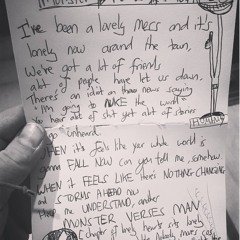 I've been a lovely mess and it's
lonely now around the town,
We've got a lot of friends
alot of people have let us down.
There's an idiot on the news saying
"I'm going to NUKE the world"
You hear alot of shit get alot of stories
go "Unheard"
WHEN it's feels like your whole world is
gonna FALL NOW can you tell me, somehow.
WHEN it FEELS LIKE there's NOTHING CHANGING
and STORMS AHEAD now
me UNDERSTAND, another
MONSTER VERSES MAN
chapter of lonely hearts sits lonely